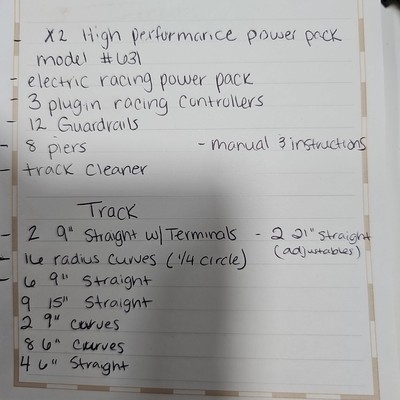 x2 High performance power pack
model #631
- electric racing power pack
- 3 plugin racing controllers
- 12 Guardrails
- 8 piers - manual & instructions
- track cleaner
Track
- 2 9" Straight w/ Terminals - 2 21" Straight (adjustables)
- 16 radius curves (1/4 circle)
- 6 9" Straight
9 15" Straight
2 9" curves
8 6" curves
4 6" Straight